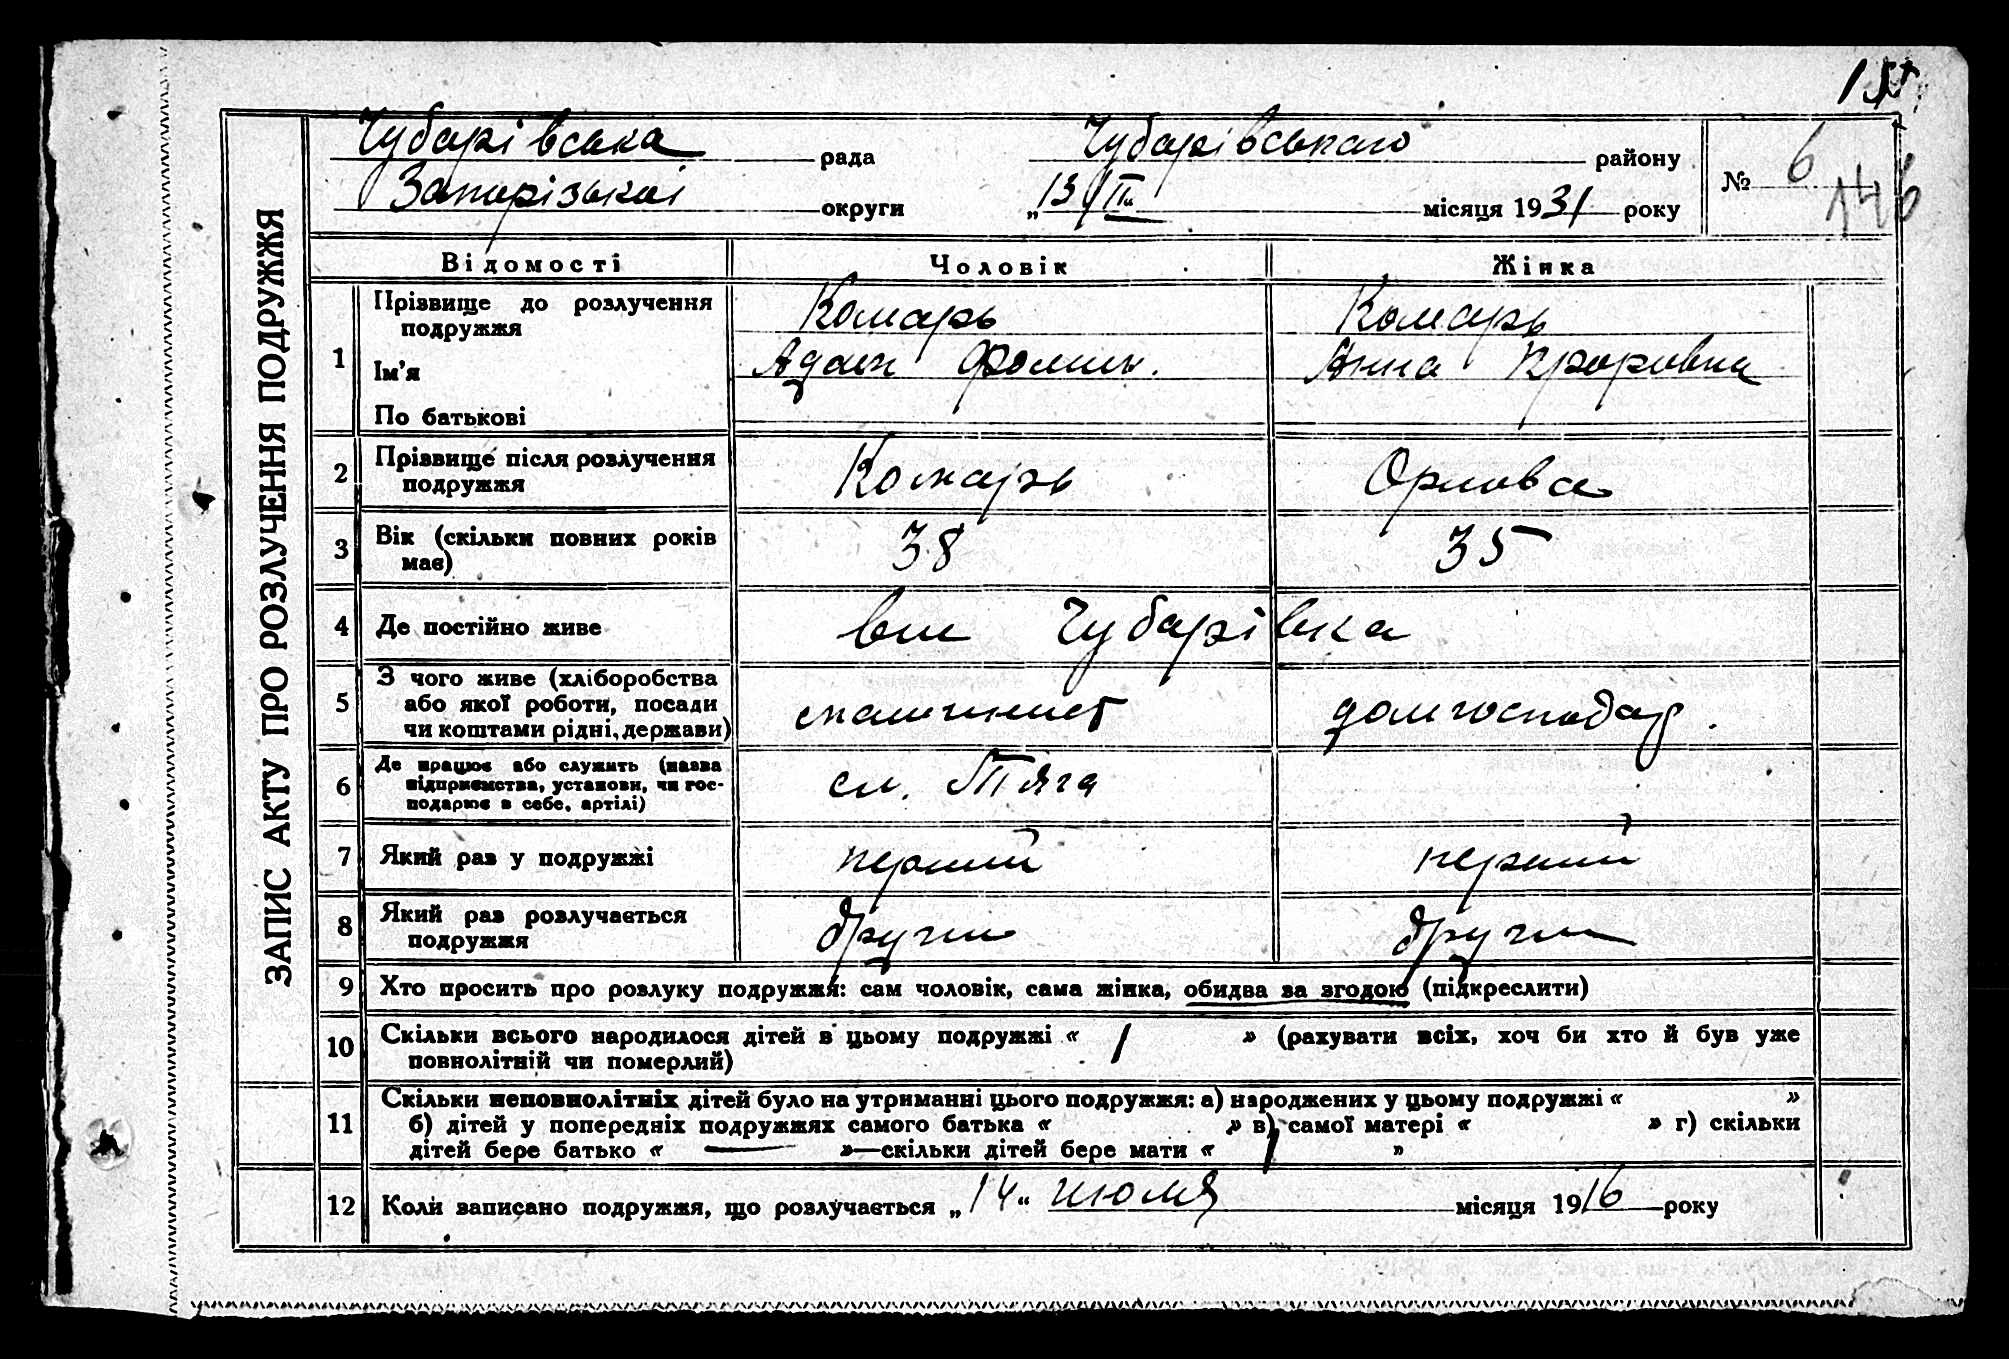 Чубарівська рада Чубарівського району № 6
146
Запорізької округи „13/II“ місяця 1931 року
ЗАПИС АКТУ ПРО РОЗЛУЧЕННЯ ПОДРУЖЖЯ
Відомості Чоловік Жінка
1 Прізвище до розлучення подружжя Комарь Комарь
Ім’я Адам Фомич. Анна Проровна
По батькові
2 Прізвище після розлучення подружжя Комарь Орлова
3 Вік (скільки повних років має) 38 35
4 Де постійно живе Чубарівка
5 З чого живе (хліборобства або якої роботи, посади чи коштами рідні, держави) машинист домгосподар.
6 Де працює або служить (назва підприємства, установи, чи господарює в себе, артілі) Тяга
7 Який раз у подружжі перший перший
8 Який раз розлучається подружжя други други
9 Хто просить про розлуку подружжя: сам чоловік, сама жінка, обидва за згодою (підкреслити)
10 Скільки всього народилося дітей в цьому подружжі « 1 » (рахувати всіх, хоч би хто й був уже
повнолітній чи померлий)
11 Скільки неповнолітніх дітей було на утриманні цього подружжя: а) народжених у цьому подружжі « »
б) дітей у попередніх подружжях самого батька « » в) самої матері « » г) скільки
дітей бере батько « — »—скільки дітей бере мати « 1 »
12 Коли записано подружжя, що розлучається „14“ июля місяця 1916 року